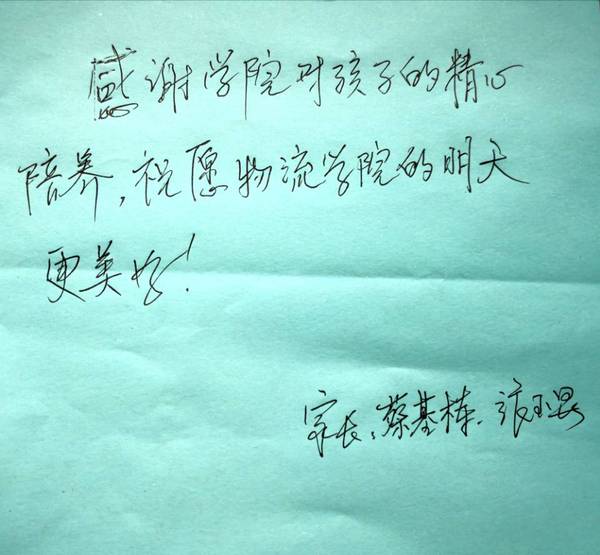 感谢学院对孩子的精心
培养，祝愿物流学院的明天
更美好！
家长：蔡基栋、